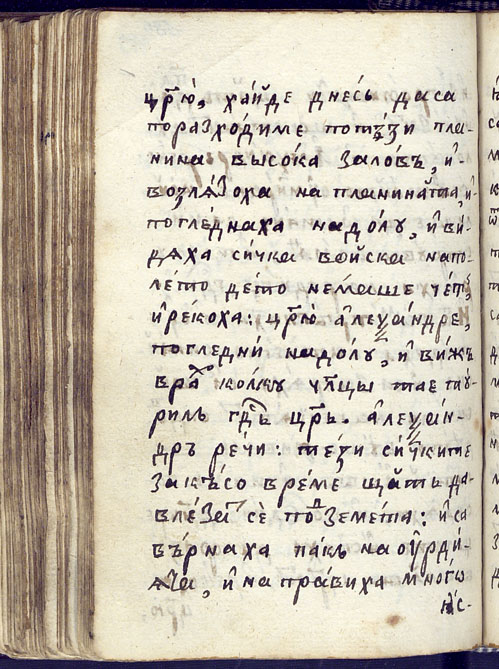 цр҃ю̀, ха́йде дне́сь да са
поразхо́диме пот꙽ѣ́зи пла-
нина̀ высо́ка за ло́въ, и҆-
возлѧ́зоха на̀ планина́та, и҆
погле́днаха надо́лꙋ, и҆ ви́-
дѧха си́чка во́йска напо-
ле́то де́то не́маше че́т,
и҆ реко́ха: цр҃ю̀ а҆леѯа́ндре,
погледнѝ надо́лꙋ, и҆ ви́жъ
вра̀х ко́лкꙋ чл҃цы тае
рилъ гдⷭ҇ь цр҃ь. а҆леѯа́н-
дръ ре́чи: те́зи си́чките
за къ́со вре́ме ща́тъ да-
влѣ́зат сѐ подъ земе́та: и҆ са
върнаха па́къ на ѻу҆рди́-
ѧ́та, и҆ напра́виха мно́гѡ
и҆с-